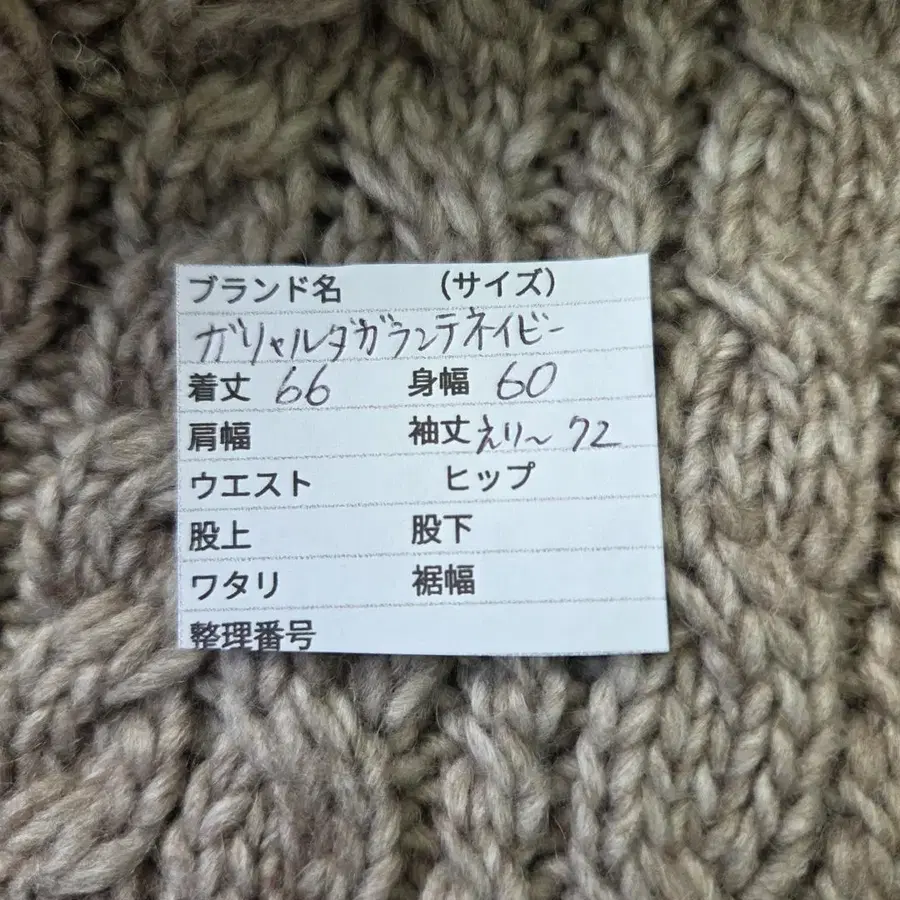 ブランド名 (サイズ)
ガリャルダガランテネイビー
着丈 66 身幅 60
肩幅 袖丈 えり～72
ウエスト ヒップ
股上 股下
ワタリ 裾幅
整理番号